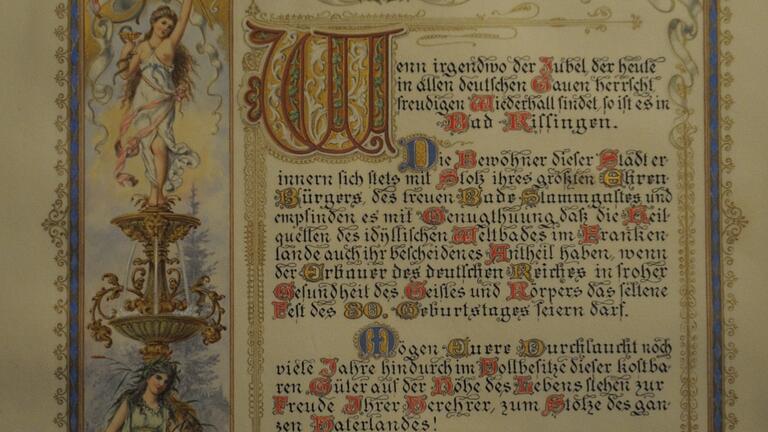 Wenn irgendwo der Jubel der heute
in allen deutschen Gauen herrscht
freudigen Wiederhall findet, so ist es in
Bad Kissingen.
Die Bewohner dieser Stadt er-
innern sich stets mit Stolz ihres größten Ehren-
Bürgers, des treuen Bade-Stammgastes und
empfinden es mit Genugthuung daß die Heil-
quellen des idyllischen Weltbades im Franken-
lande auch ihr bescheidenes Antheil haben, wenn
der Erbauer des deutschen Reiches in froher
Gesundheit des Geistes und Körpers das seltene
Fest des 80. Geburtstages feiern darf.
Mögen Euere Durchlaucht noch
viele Jahre hindurch im Vollbesitze dieser kostba-
ren Güter auf der Höhe des Lebens stehen zur
Freude Ihrer Verehrer, zum Stolze des gan-
zen Vaterlandes!